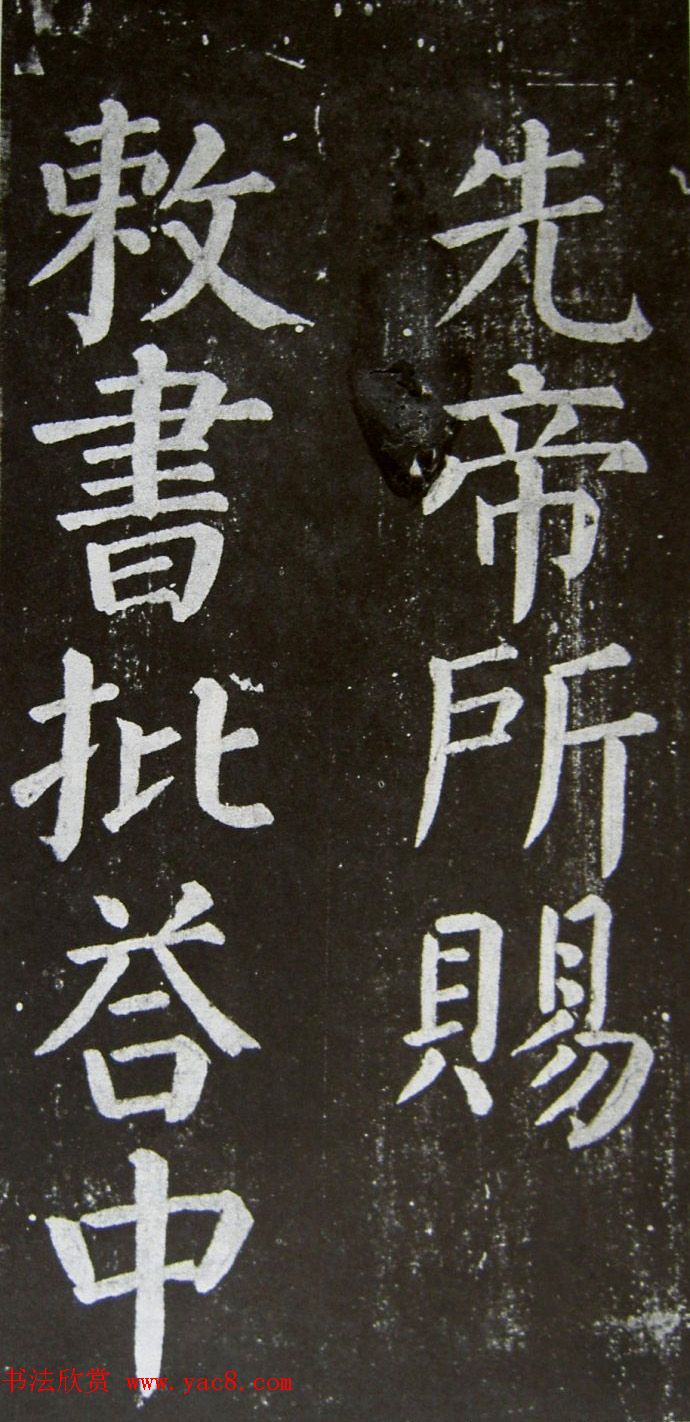 先帝所賜
敕書批荅中
书法欣赏 www.yac8.com